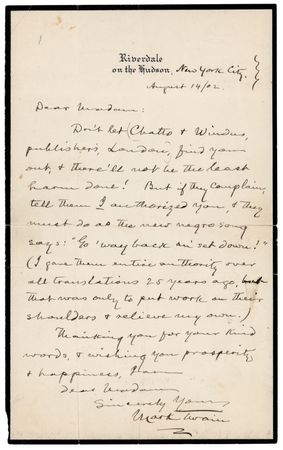 Riverdale
on the Hudson, New York City,
August 14/02.
Dear Madam:
Don't let (Chatto & Windus,
publishers, London, find you
out, & there'll not be the least
harm done! But if they complain,
tell them I authorized you, & they
must do as the new negro song
says: "Go 'way back an' set down!"
(I gave them entire authority over
all translations 25 years ago, but
that was only to put work on their
shoulders & relieve my own.)
Thanking you for your kind
words, & wishing you prosperity
& happiness, I am
Dear Madam
Sincerely Yours
Mark Twain